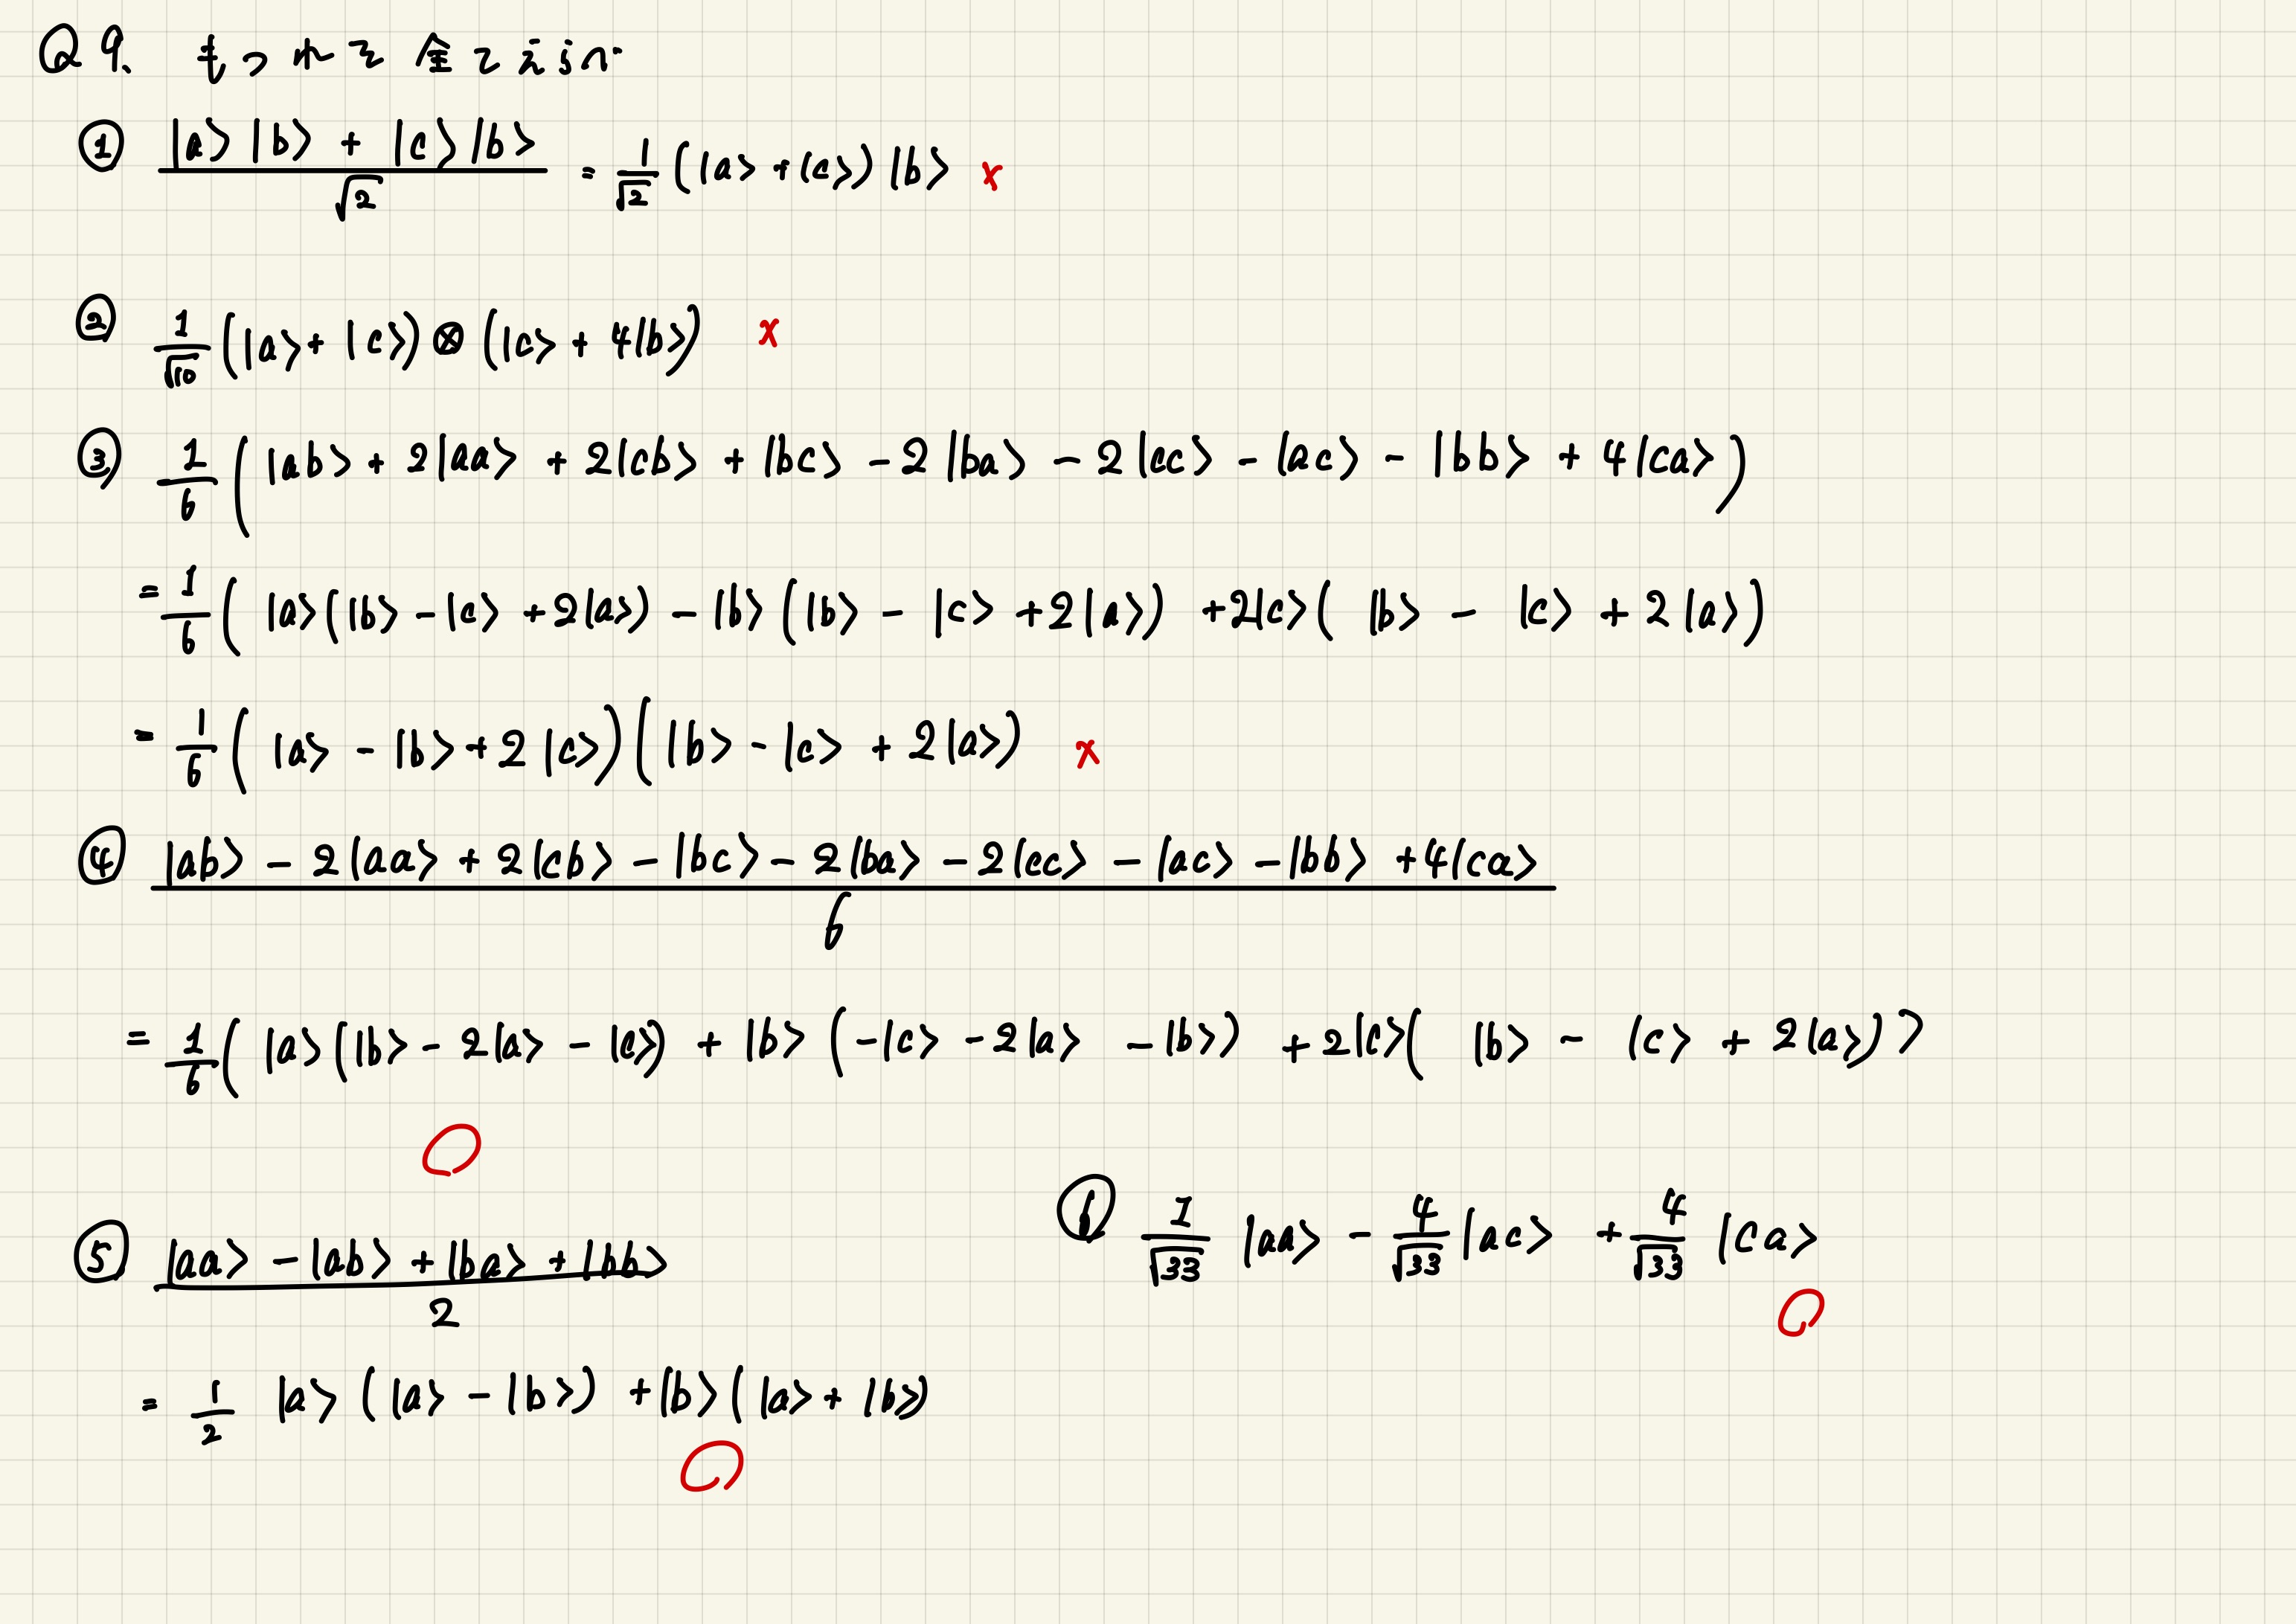 Q9. もつれを全て示せ
① (|a⟩|b⟩ + |c⟩|b⟩)/√2 = 1/√2 (|a⟩ + |c⟩)|b⟩ ×
② 1/√10 (|a⟩ + |c⟩) ⊗ (|c⟩ + 4|b⟩) ×
③ 1/6 (|ab⟩ + 2|aa⟩ + 2|cb⟩ + |bc⟩ - 2|ba⟩ - 2|cc⟩ - |ac⟩ - |bb⟩ + 4|ca⟩)
= 1/6 (|a⟩(|b⟩ - |c⟩ + 2|a⟩) - |b⟩(|b⟩ - |c⟩ + 2|a⟩) + 2|c⟩(|b⟩ - |c⟩ + 2|a⟩)
= 1/6 (|a⟩ - |b⟩ + 2|c⟩)(|b⟩ - |c⟩ + 2|a⟩) ×
④ (|ab⟩ - 2|aa⟩ + 2|cb⟩ - |bc⟩ - 2|ba⟩ - 2|cc⟩ - |ac⟩ - |bb⟩ + 4|ca⟩)/6
= 1/6 (|a⟩(|b⟩ - 2|a⟩ - |c⟩) + |b⟩(-|c⟩ - 2|a⟩ - |b⟩) + 2|c⟩(|b⟩ - |c⟩ + 2|a⟩))
○
⑤ (|aa⟩ - |ab⟩ + |ba⟩ + |bb⟩)/2
= 1/2 |a⟩(|a⟩ - |b⟩) + |b⟩(|a⟩ + |b⟩)
○
⑥ 1/√33 |aa⟩ - 4/√33 |ac⟩ + 4/√33 |ca⟩
○